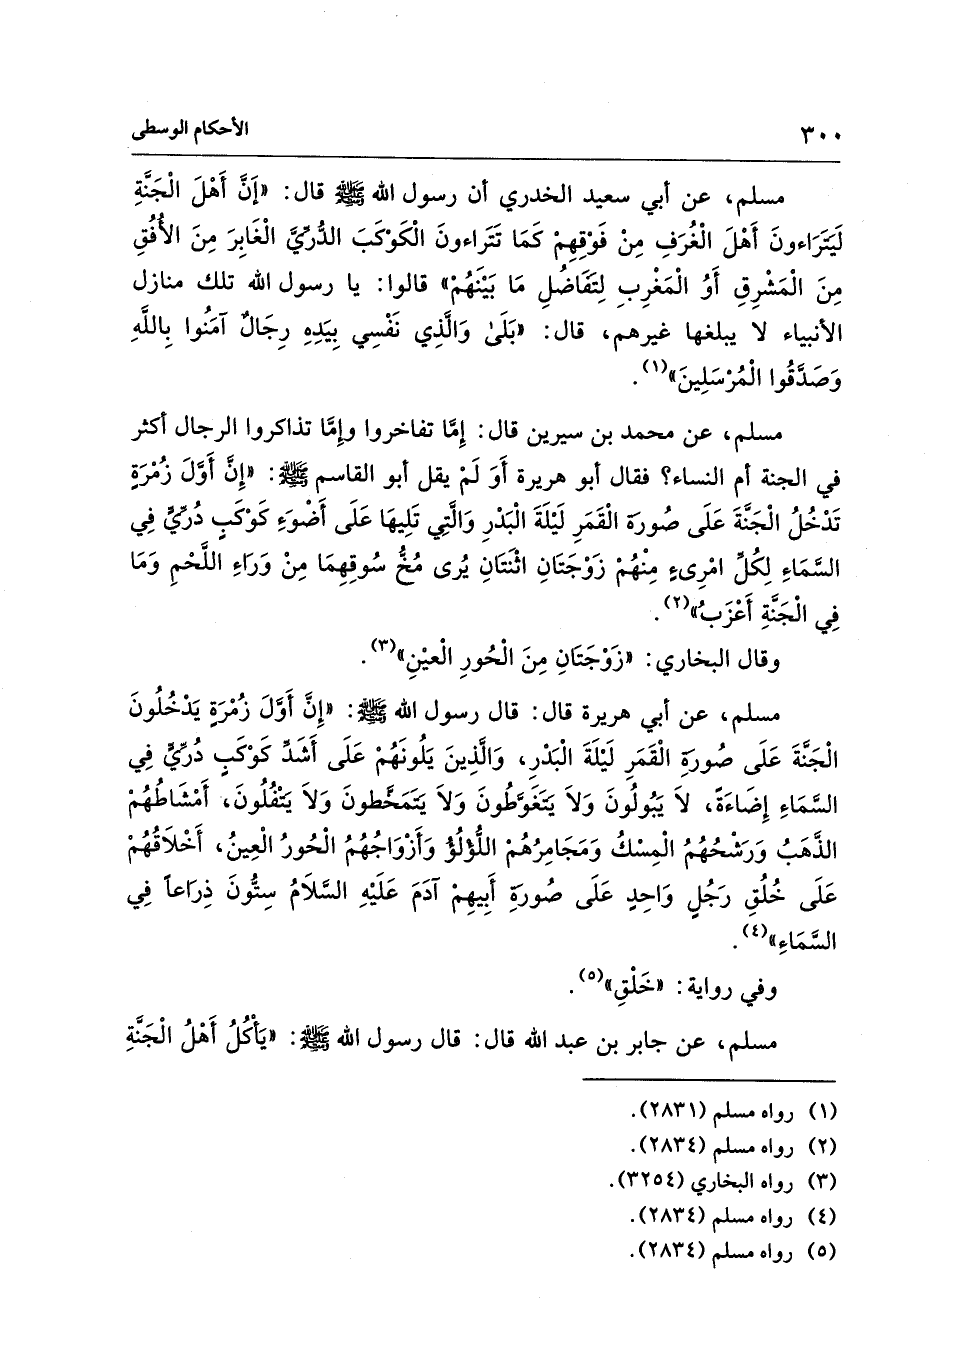 ٣٠٠ الأحكام الوسطى
مسلم، عن أبي سعيد الخدري أن رسول الله ﷺ قال: «إَنَّ أَهْلَ الْجَنَّةِ
لَيَتَرَاءونَ أَهْلَ الْغُرَفِ مِنْ فَوْقِهِمْ كَمَا تَتَراءونَ الْكَوْكَبَ الدُّرِّيَّ الْغَابِرَ مِنَ الأُفُقِ
مِنَ الْمَشْرِقِ أَوْ الْمَغْرِبِ لِتَفَاضُلِ مَا بَيْنَهُمْ» قالوا: يا رسول الله تلك منازل
الأنبياء لا يبلغها غيرهم، قال: «بَلَىٰ وَالَّذِي نَفْسِي بِيَدِهِ رِجَالٌ آمَنُوا بِاللَّهِ
وَصَدَّقُوا الْمُرْسَلِينَ»(١).
مسلم، عن محمد بن سيرين قال: إِمَّا تفاخروا وإِمَّا تذاكروا الرجال أكثر
في الجنة أم النساء؟ فقال أبو هريرة أَوَ لَمْ يقل أبو القاسم ﷺ: «إِنَّ أَوَّلَ زُمْرَةٍ
تَدْخُلُ الْجَنَّةَ عَلَى صُورَة الْقَمَرِ لَيْلَةَ الْبَدْرِ وَالَّتِي تَلِيهَا عَلَى أَضْوَءِ كَوْكَبٍ دُرِّيٍّ فِي
السَّمَاءِ لِكُلِّ امْرِىءٍ مِنْهُمْ زَوْجَتَانِ اثْنَتَانِ يُرى مُخُّ سُوقِهِمَا مِنْ وَرَاءِ اللَّحْمِ وَمَا
فِي الْجَنَّةِ أَعْزَبُ»(٢).
وقال البخاري: «زَوْجَتَانِ مِنَ الْحُورِ الْعيْنِ»(٣).
مسلم، عن أبي هريرة قال: قال رسول الله ﷺ: «إِنَّ أَوَّلَ زُمْرَةٍ يَدْخُلُونَ
الْجَنَّةَ عَلَى صُورَةِ الْقَمَرِ لَيْلَةَ الْبَدْرِ، وَالَّذِينَ يَلُونَهُمْ عَلَى أَشَدِّ كَوْكَبٍ دُرِّيٍّ فِي
السَّمَاءِ إِضَاءَةً، لاَ يَبُولُونَ وَلاَ يَتَغَوَّطُونَ وَلاَ يَتَمَخَّطونَ وَلاَ يَتْفُلُونَ، أَمْشَاطُهُمْ
الذَّهَبُ وَرَشْحُهُمُ الْمِسْكُ وَمَجَامِرُهُمْ اللُّؤلُؤ وَأَزْوَاجُهُمُ الْحُورُ الْعِينُ، أَخْلاَقُهُمْ
عَلَى خُلُقِ رَجُلٍ وَاحِدٍ عَلَى صُورَةِ أَبِيهِمْ آدَمَ عَلَيْهِ السَّلاَمُ سِتُّونَ ذِرَاعاً فِي
السَّمَاءِ»(٤).
وفي رواية: «خَلْقِ»(٥).
مسلم، عن جابر بن عبد الله قال: قال رسول الله ﷺ: «يَأْكُلُ أَهْلُ الْجَنَّةِ
(١) رواه مسلم (٢٨٣١).
(٢) رواه مسلم (٢٨٣٤).
(٣) رواه البخاري (٣٢٥٤).
(٤) رواه مسلم (٢٨٣٤).
(٥) رواه مسلم (٢٨٣٤).